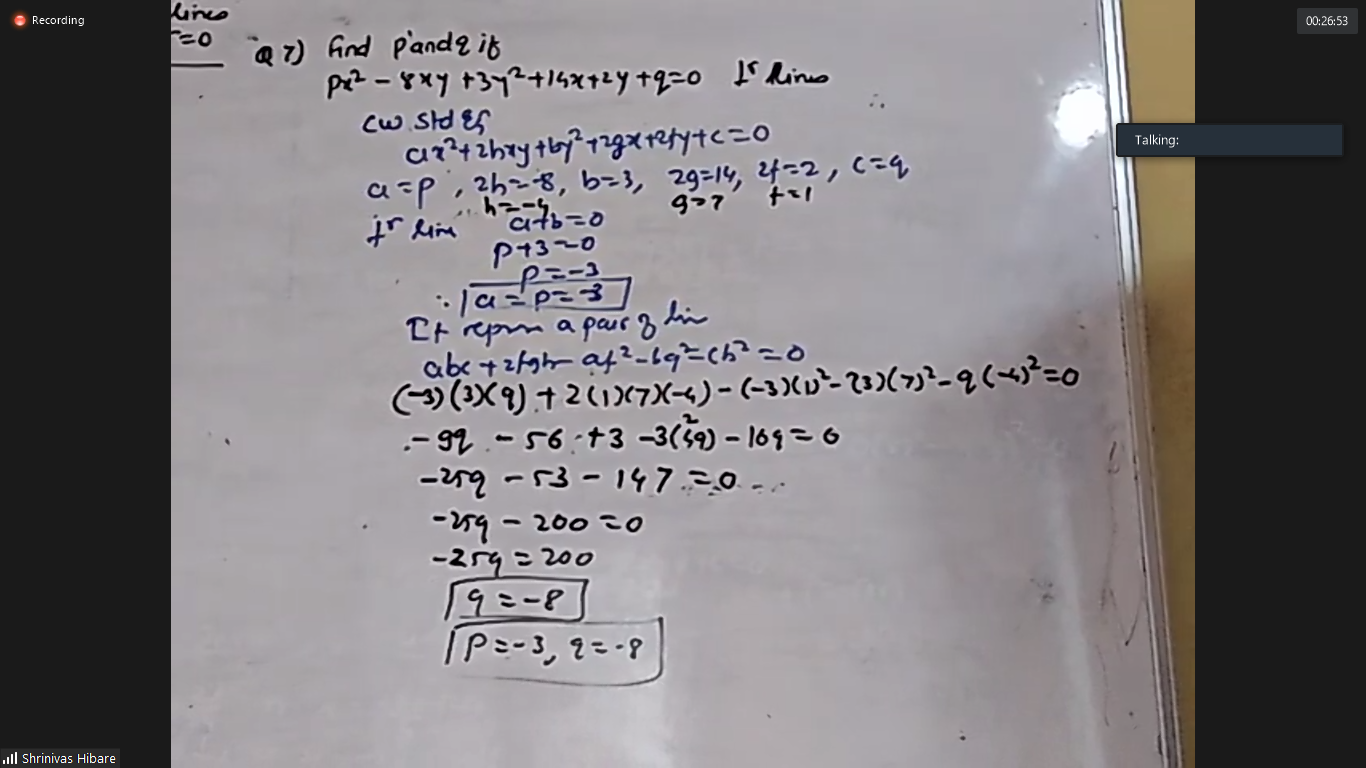 Recording
00:26:53
Talking:
lines
r=0
Q 7) find p and q if
px² - 8xy + 3y² + 14x + 2y + q = 0 ⊥r lines
cw std eq
ax² + 2hxy + by² + 2gx + 2fy + c = 0
a = p , 2h = -8, b = 3, 2g = 14, 2f = 2 , c = q
h = -4 g = 7 f = 1
⊥r line a+b=0
p+3=0
p = -3
∴ a = p = -3
It repres a pair of lin
abc + 2fgh - af² - bg² - ch² = 0
(-3)(3)(q) + 2(1)(7)(-4) - (-3)(1)² - (3)(7)² - q(-4)² = 0
-9q - 56 + 3 - 3(49) - 16q = 0
-25q - 53 - 147 = 0
-25q - 200 = 0
-25q = 200
q = -8
P = -3, q = -8
Shrinivas Hibare